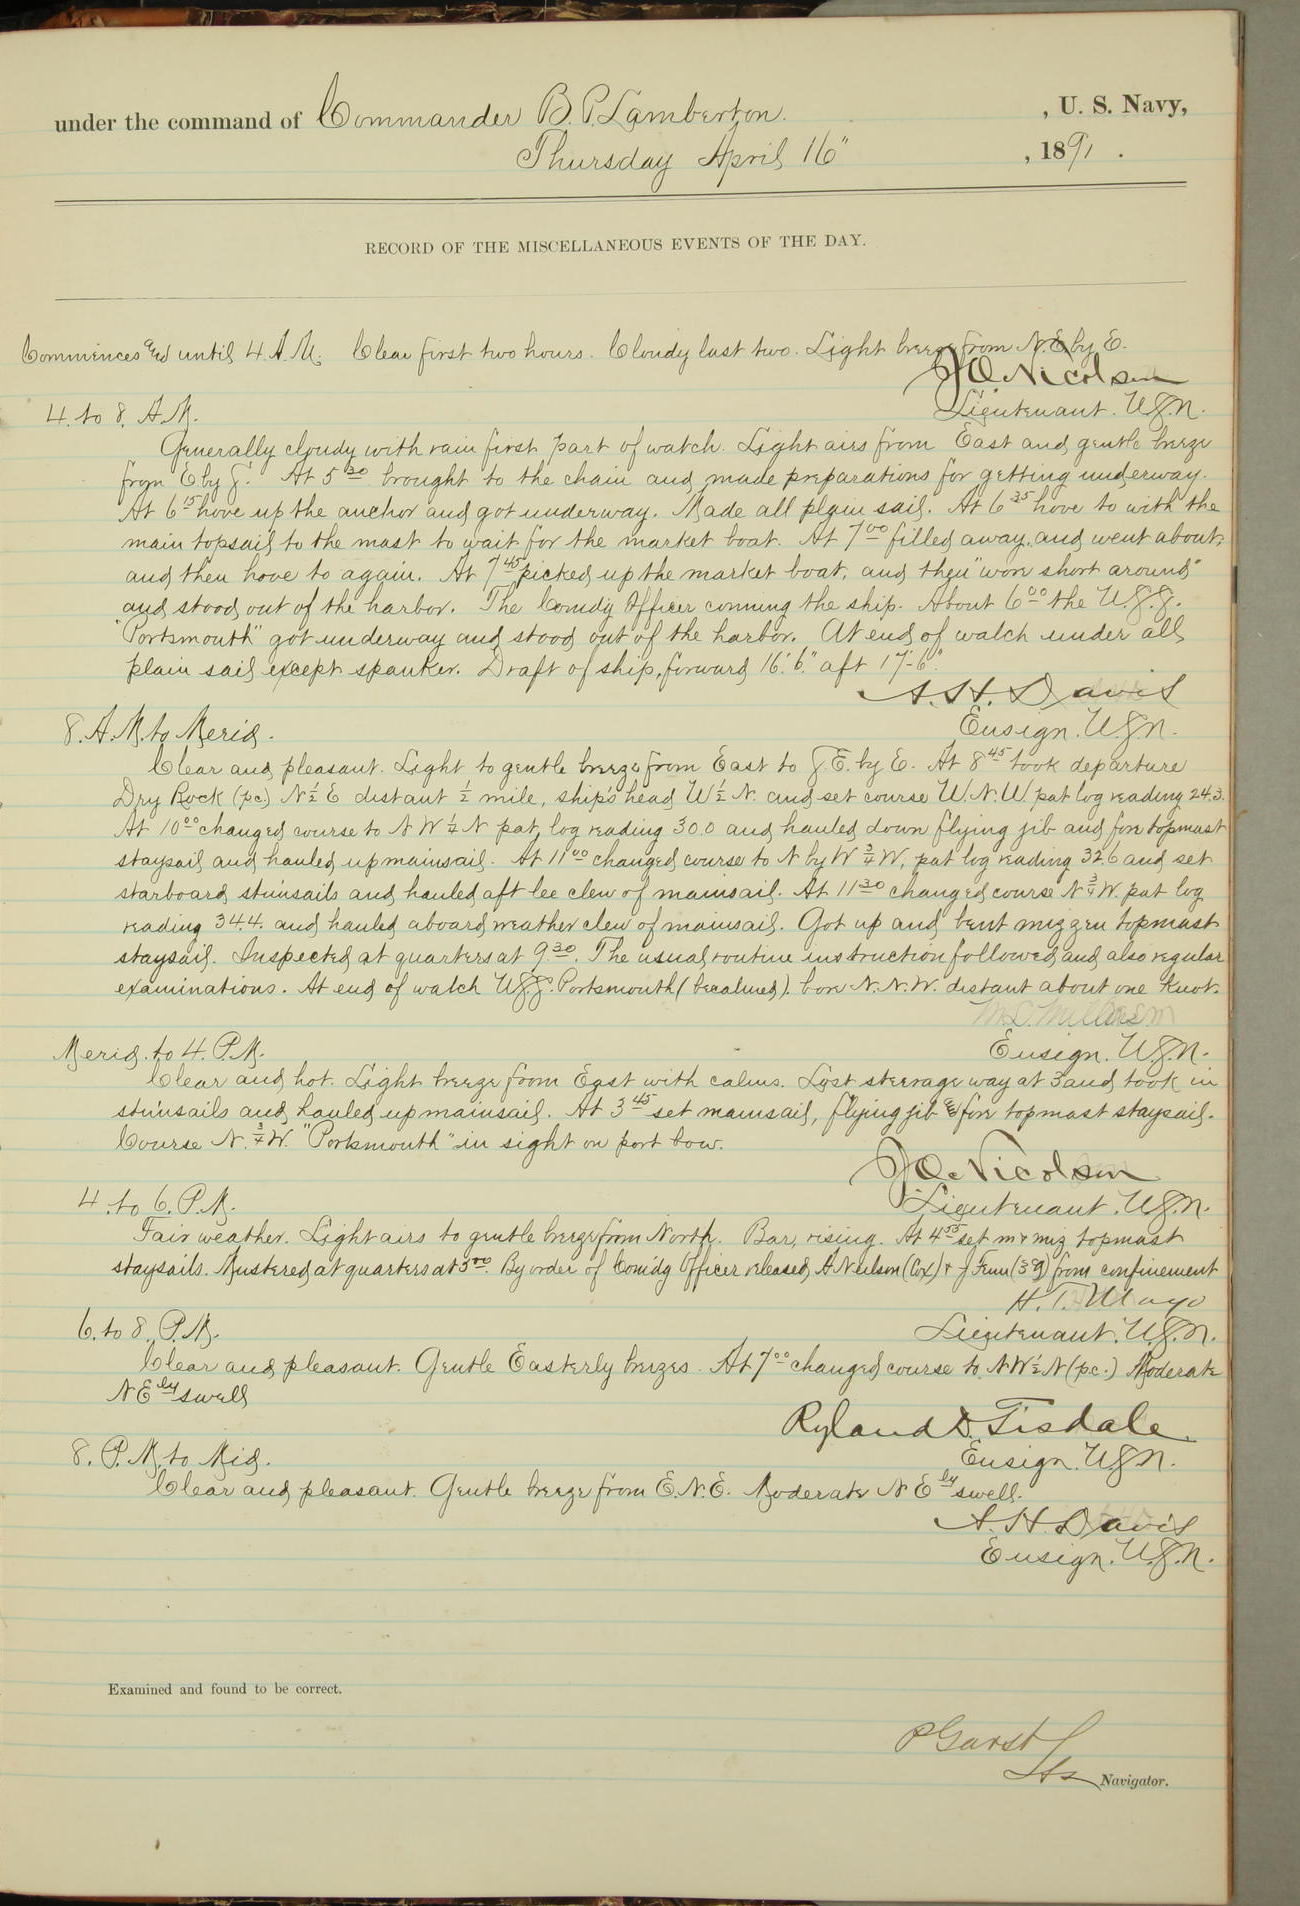 under the command of Commander B. P. Lamberton. , U. S. Navy,
Thursday April 16" , 1891 .
RECORD OF THE MISCELLANEOUS EVENTS OF THE DAY.
Commences and until 4 A.M. Clear first two hours. Cloudy last two. Light breeze from N.E by E.
J O Nicolson
Lieutenant. U.S.N.
4. to 8. A.M.
Generally cloudy with rain first part of watch. Light airs from East and gentle breeze
from E by S. At 5 30 brought to the chain and made preparations for getting underway.
At 6 15 hove up the anchor and got underway. Made all plain sail. At 6 35 hove to with the
main topsail to the mast to wait for the market boat. At 7 00 filled away, and went about,
and then hove to again. At 7 45 picked up the market boat, and then "wore short around"
and stood out of the harbor. The Comdg Officer conning the ship. About 6 00 the U.S.S.
"Portsmouth" got underway and stood out of the harbor. At end of watch under all
plain sail except spanker. Draft of ship, forward 16'. 6". aft 17'-6".
A. H. Davis
Ensign. U.S.N.
8. A.M. to Merid.
Clear and pleasant. Light to gentle breeze from East to S.E. by E. At 8 45 took departure
Dry Rock (p.c.) N ½ E distant ½ mile, ship's head W ½ N. and set course W.N.W pat log reading 24.3.
At 10 00 changed course to N W ¼ N pat, log reading 30.0 and hauled down flying jib and fore topmast
staysail and hauled up mainsail. At 11 00 changed course to N by W ¾ W, pat log reading 32.6 and set
starboard stunsails and hauled aft lee clew of mainsail. At 11 30 changed course N ¾ W. pat log
reading 34.4. and hauled aboard weather clew of mainsail. Got up and bent mizzen topmast
staysail. Inspected at quarters at 9 30. The usual routine instruction followed and also regular
examinations. At end of watch U.S.S. Portsmouth (becalmed). bore N.N.W. distant about one knot.
Ensign. U.S.N.
Merid. to 4. P.M.
Clear and hot. Light breeze from East with calms. Lost steerage way at 3 and took in
stu'nsails and hauled up mainsail. At 3 45 set mainsail, flying jib & fore topmast staysail.
Course N. ¾ W. "Portsmouth" in sight on port bow.
J O. Nicolson
Lieutenant. U.S.N.
4. to 6. P.M.
Fair weather. Light airs to gentle breeze from North. Bar, rising. At 4 55 set m & miz topmast
staysails. Mustered at quarters at 5 00. By order of Com'dg Officer released A Neilson (Cox) & J Fenn from confinement
H. T. Mayo
Lieutenant. U.S.N.
6. to 8. P.M.
Clear and pleasant. Gentle Easterly breezes. At 7 00 changed course to NW ½ N (p.c.) Moderate
N E ly swell
Ryland D. Tisdale.
Ensign. U.S.N.
8. P.M. to Mid.
Clear and pleasant. Gentle breeze from E.N.E. Moderate N E ly swell.
A. H. Davis
Ensign. U.S.N.
Examined and found to be correct.
P Garst
Lt Navigator.